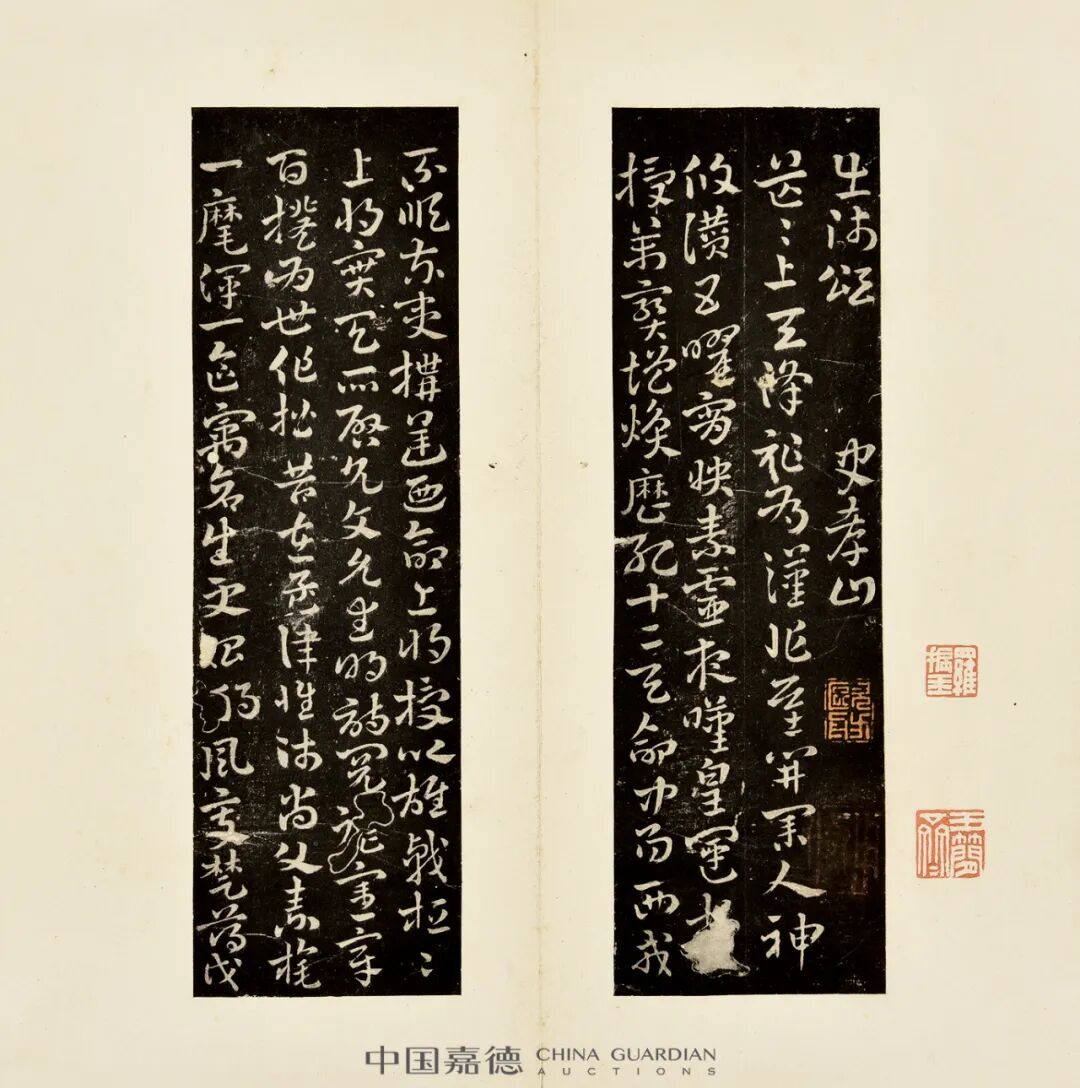 出師頌　史孝山
茫〻上天降祚為漢兆基開業人神
攸讚五曜宵映素靈夜嘆皇運来
授萬寳增煥歷紀十二天命中易西戎
不順東夷構逆迺命上將授以雄戟桓〻
上將寔天所啓允文允武明詩閱禮憲章
百揆為世作楷昔在孟津惟師尚父素旄
一麾渾一區寓蒼生更始朔風變楚薄伐
羅振玉
玉簡齋
中国嘉德 CHINA GUARDIAN
AUCTIONS